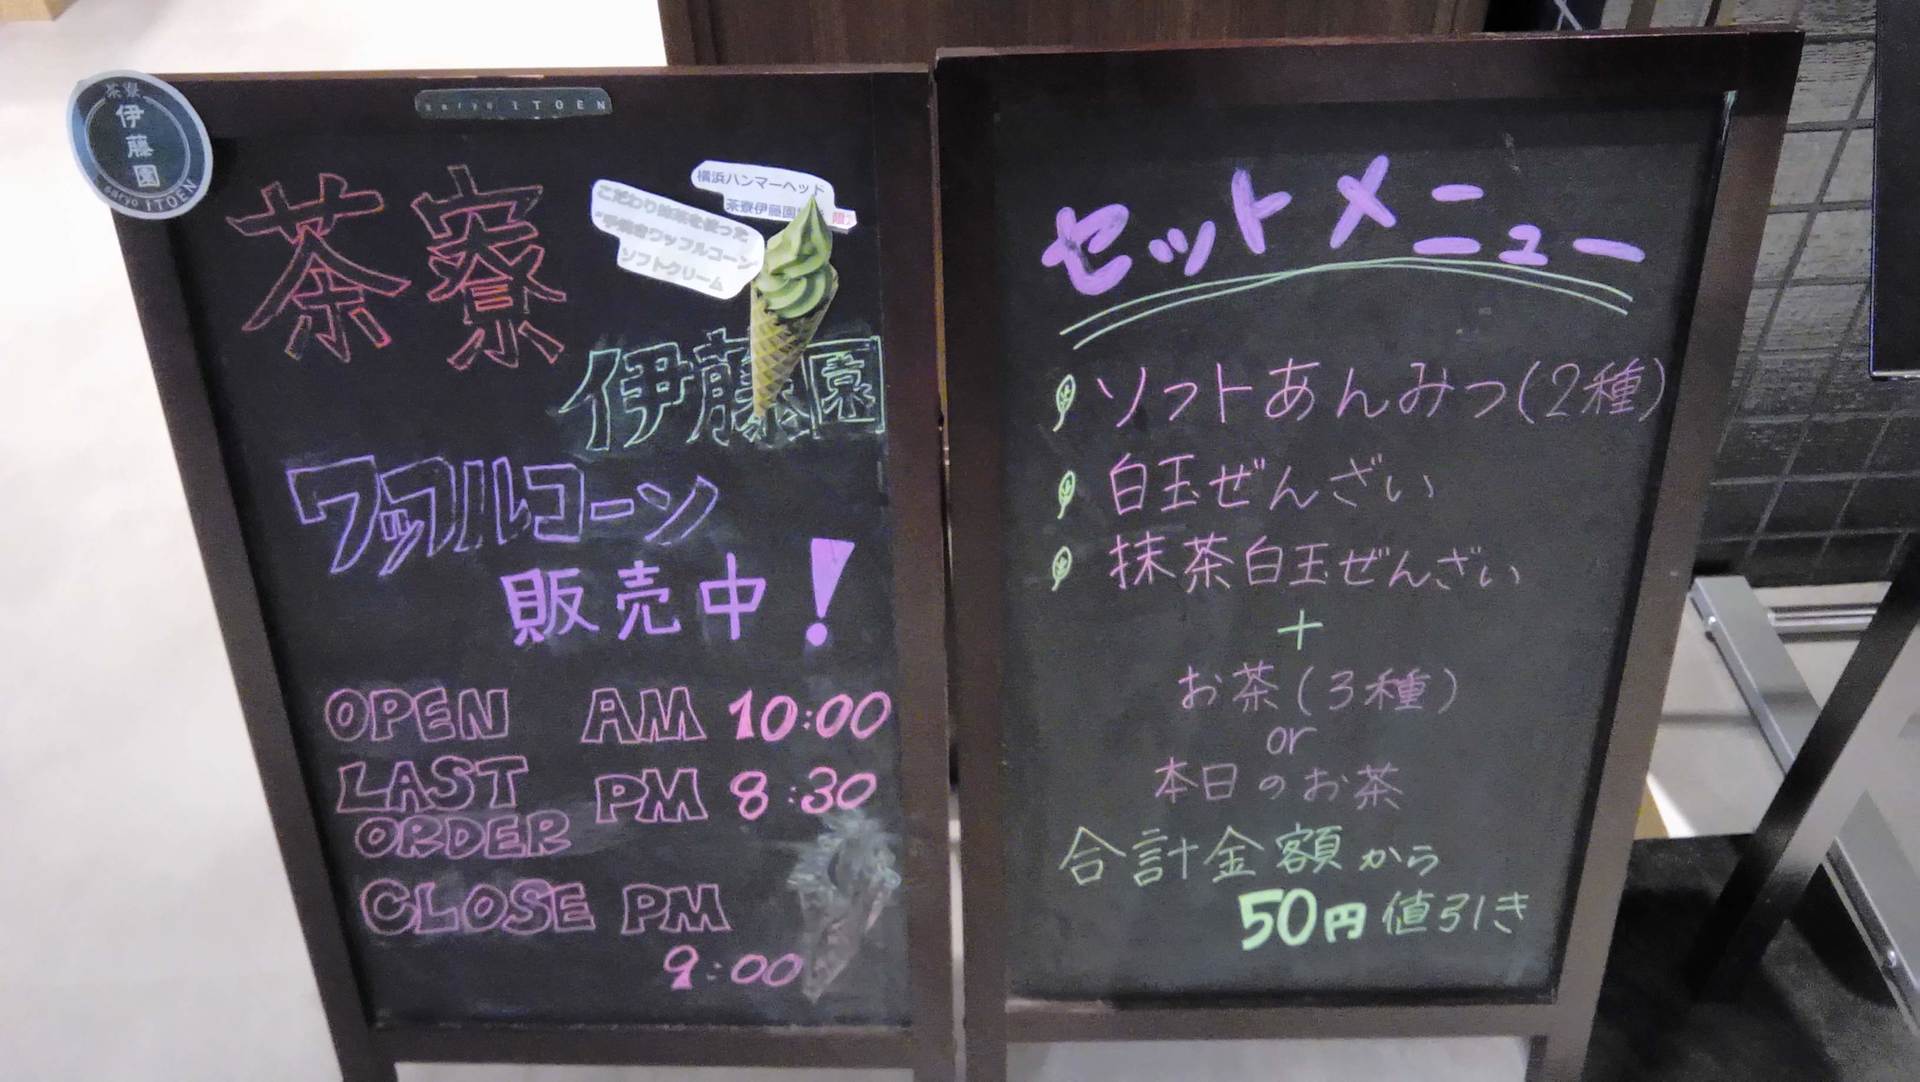 茶寮
伊藤園
saryo ITOEN
saryo ITOEN
茶寮
横浜ハンマーヘッド
茶寮伊藤園
こだわり抹茶を使った
"手焼きワッフルコーン
ソフトクリーム
伊藤園
ワッフルコーン
販売中!
OPEN AM 10:00
LAST PM 8:30
ORDER
CLOSE PM
9:00
セットメニュー
ソフトあんみつ(2種)
白玉ぜんざい
抹茶白玉ぜんざい
+
お茶(3種)
or
本日のお茶
合計金額から
50円値引き